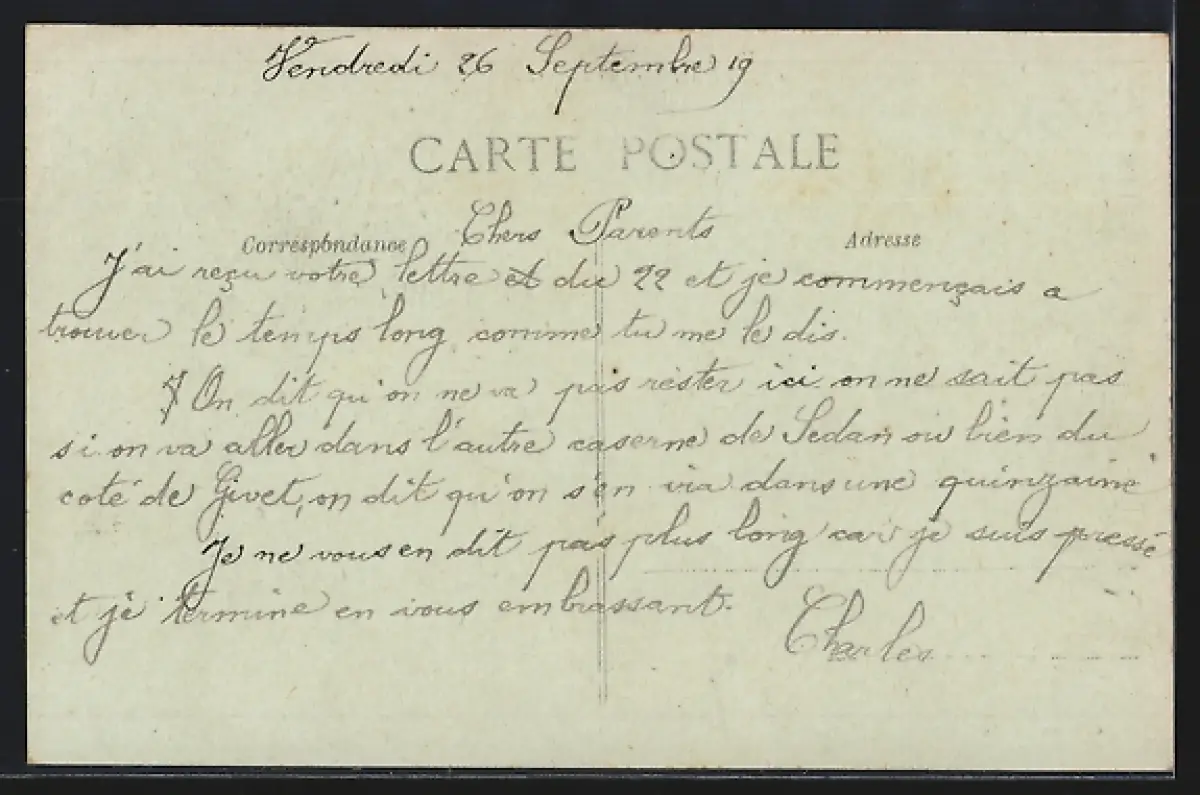 Vendredi 26 Septembre 19
CARTE POSTALE
Chers Parents
Correspondance
Adresse
J'ai reçu votre lettre et du 22 et je commençais a
trouver le temps long comme tu me le dis.
On dit qu'on ne va pas rester ici on ne sait pas
si on va aller dans l'autre caserne de Sedan ou bien du
coté de Givet, on dit qu'on s'en via dans une quinzaine
Je ne vous en dit pas plus long car je suis pressé
et je termine en vous embrassant.
Charles